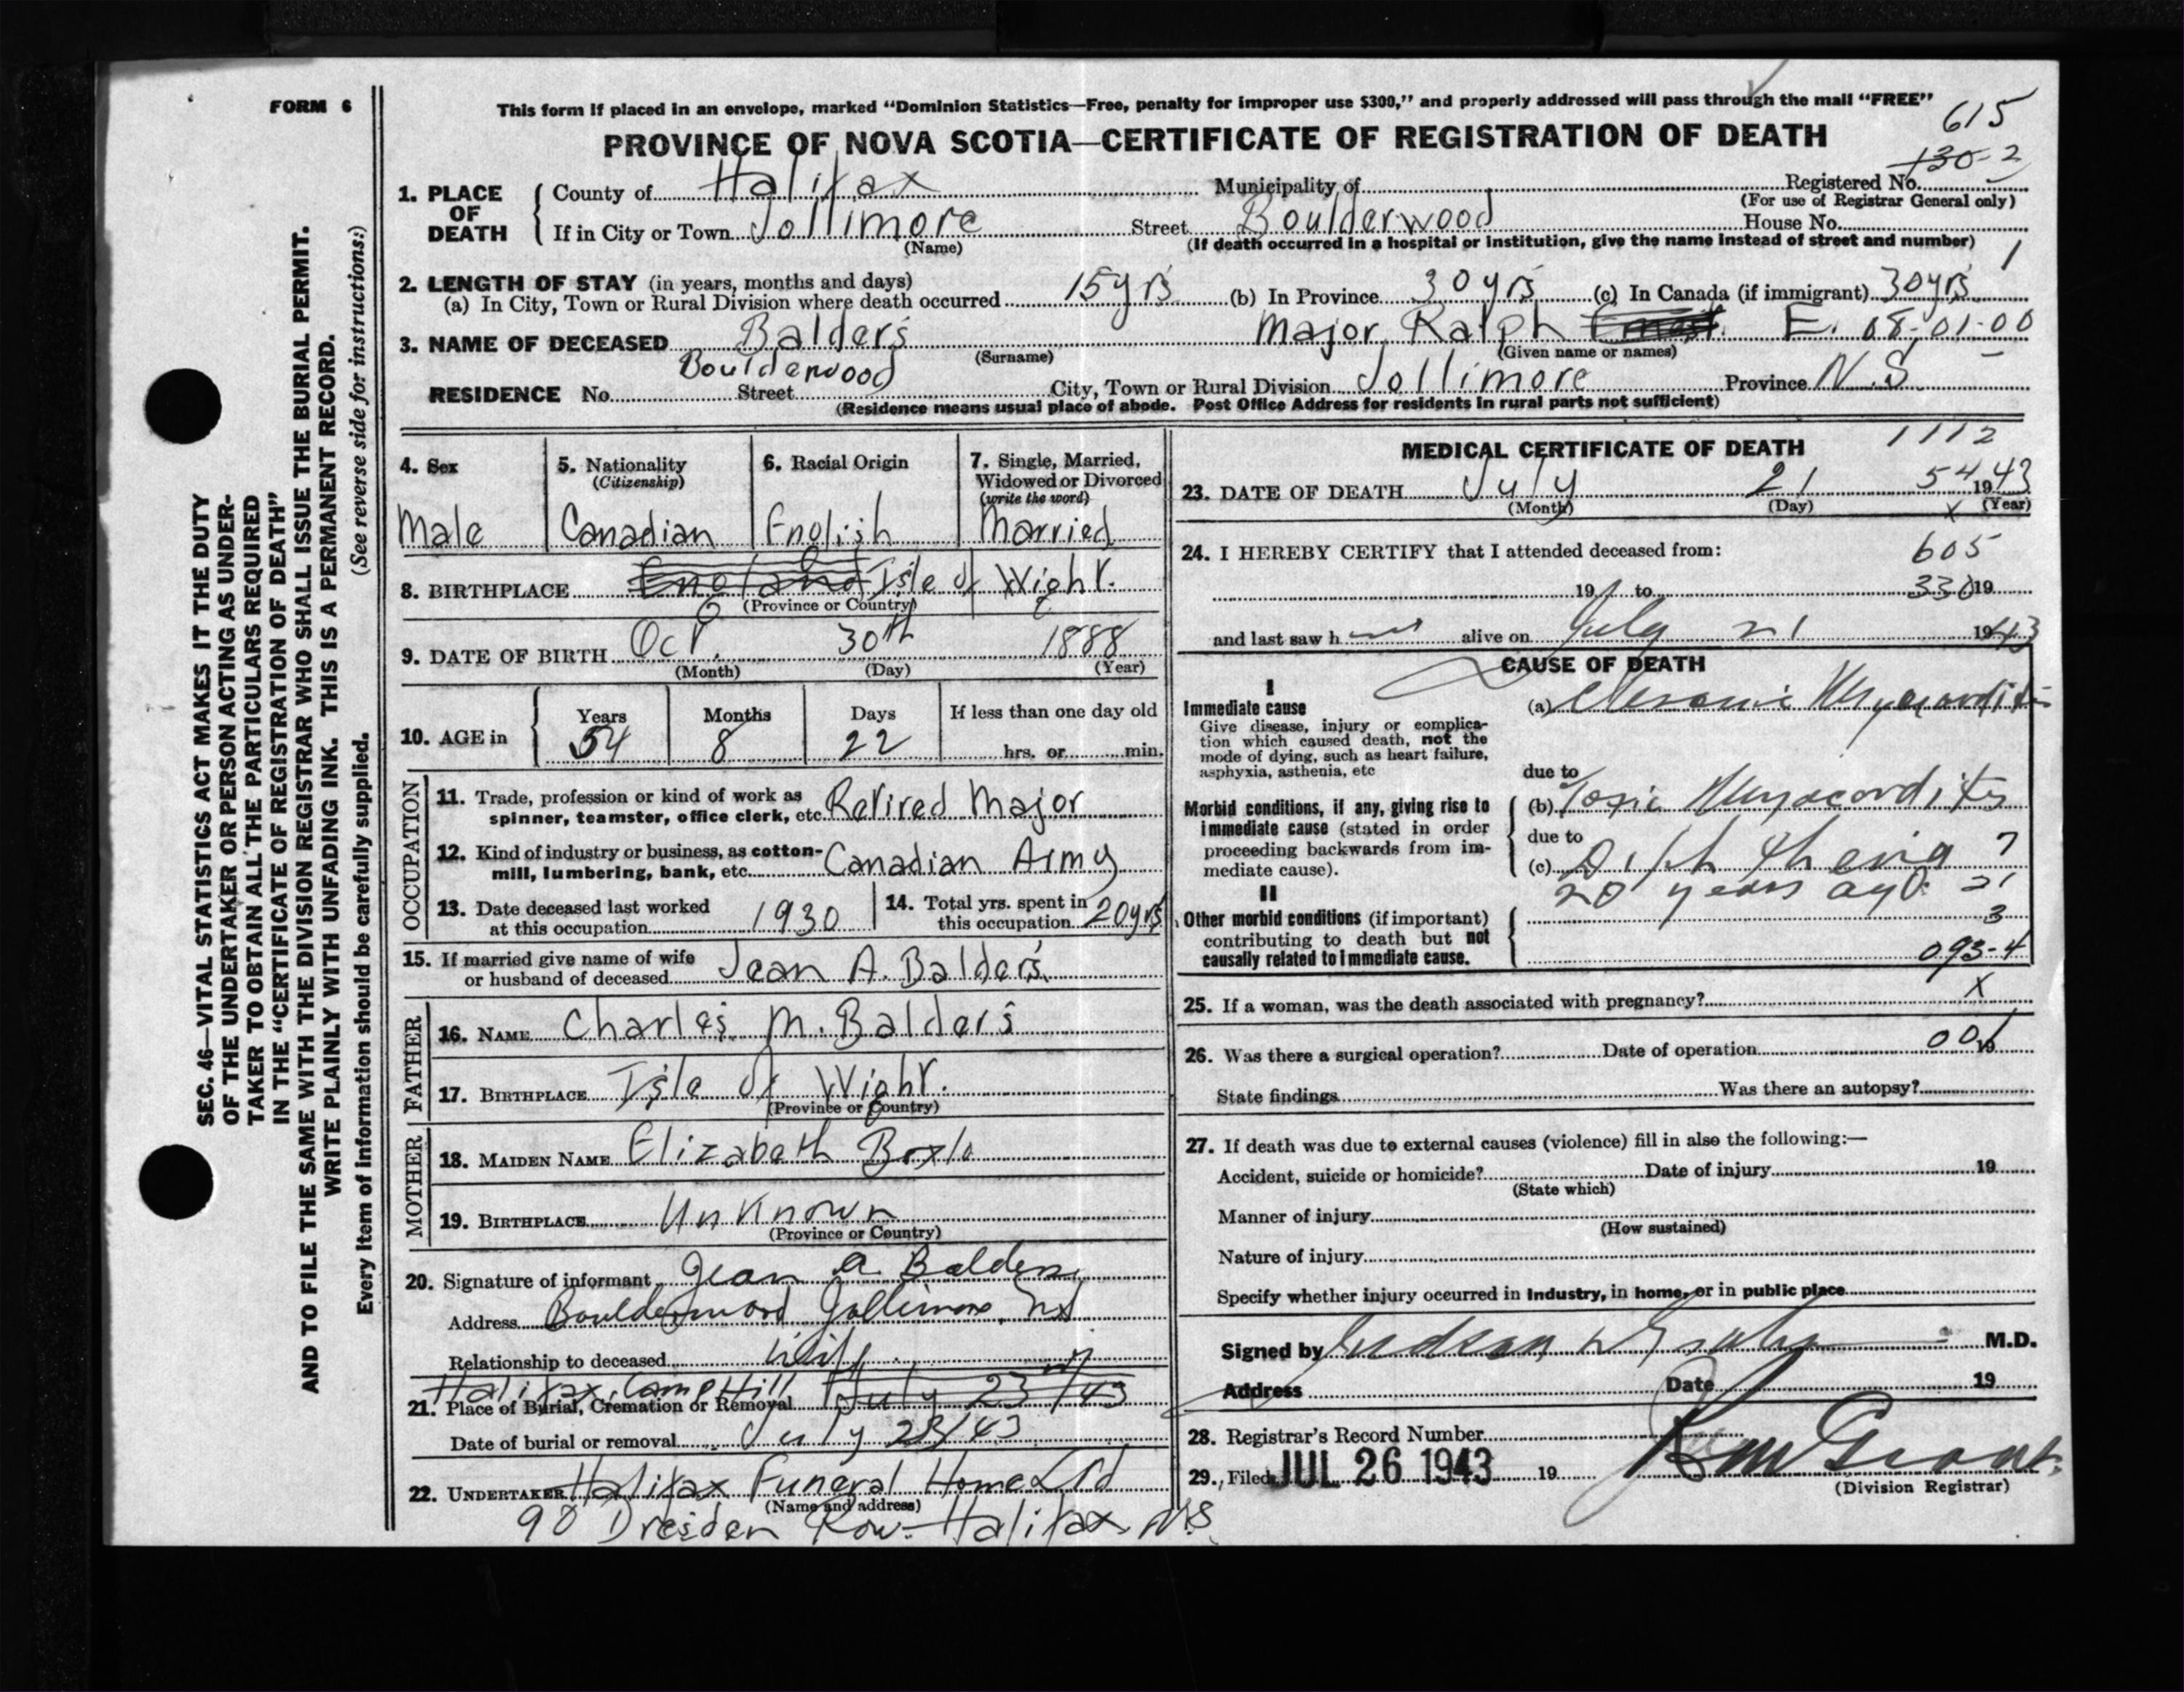 FORM 6
This form if placed in an envelope, marked “Dominion Statistics—Free, penalty for improper use $300,” and properly addressed will pass through the mail “FREE”
615
PROVINCE OF NOVA SCOTIA—CERTIFICATE OF REGISTRATION OF DEATH
130-2
1. PLACE OF DEATH { County of Halifax Municipality of Registered No.
(For use of Registrar General only)
If in City or Town Jollimore Street Boulderwood House No.
(Name) (If death occurred in a hospital or institution, give the name instead of street and number) 1
2. LENGTH OF STAY (in years, months and days)
(a) In City, Town or Rural Division where death occurred 15 yrs (b) In Province 30 yrs (c) In Canada (if immigrant) 30 yrs
3. NAME OF DECEASED Balders Major Ralph Ernest E. 08-01-00
(Surname) (Given name or names)
RESIDENCE No. Street Boulderwood City, Town or Rural Division Jollimore Province N.S.
(Residence means usual place of abode. Post Office Address for residents in rural parts not sufficient)
4. Sex
Male
5. Nationality
(Citizenship)
Canadian
6. Racial Origin
English
7. Single, Married,
Widowed or Divorced
(write the word)
Married
8. BIRTHPLACE England Isle of Wight.
(Province or Country)
9. DATE OF BIRTH Oct. 30th 1888
(Month) (Day) (Year)
10. AGE in { Years Months Days If less than one day old
54 8 22 hrs. or min.
OCCUPATION
11. Trade, profession or kind of work as
spinner, teamster, office clerk, etc. Retired Major
12. Kind of industry or business, as cotton-
mill, lumbering, bank, etc. Canadian Army
13. Date deceased last worked
at this occupation 1930
14. Total yrs. spent in
this occupation 20 yrs
15. If married give name of wife
or husband of deceased Jean A. Balders
FATHER
16. NAME Charles M. Balders
17. BIRTHPLACE Isle of Wight.
(Province or Country)
MOTHER
18. MAIDEN NAME Elizabeth
19. BIRTHPLACE Unknown
(Province or Country)
20. Signature of informant Jean A. Balders
Address Boulderwood Jollimore N.S
Relationship to deceased wife
21. Place of Burial, Cremation or Removal Halifax, Camp Hill July 23/43
Date of burial or removal July 23/43
22. UNDERTAKER Halifax Funeral Home Ltd
(Name and address)
90 Dresden Row - Halifax N.S
MEDICAL CERTIFICATE OF DEATH 1112
23. DATE OF DEATH July 21 54 1943
(Month) (Day) x (Year)
24. I HEREBY CERTIFY that I attended deceased from: 605
19 to 330 19
and last saw h alive on July 21 1943
CAUSE OF DEATH
I
Immediate cause (a) Chronic Myocarditis
Give disease, injury or complica-
tion which caused death, not the
mode of dying, such as heart failure,
asphyxia, asthenia, etc
due to
Morbid conditions, if any, giving rise to (b) Toxic Myocarditis
immediate cause (stated in order due to
proceeding backwards from im- (c) Diphtheria 7
mediate cause). 20 years ago. 21
II
Other morbid conditions (if important) 3
contributing to death but not
causally related to immediate cause. 093-4
25. If a woman, was the death associated with pregnancy? X
26. Was there a surgical operation? Date of operation 00 19
State findings Was there an autopsy?
27. If death was due to external causes (violence) fill in also the following:—
Accident, suicide or homicide? Date of injury 19
(State which)
Manner of injury
(How sustained)
Nature of injury
Specify whether injury occurred in Industry, in home, or in public place
Signed by M.D.
Address Date 19
28. Registrar's Record Number
29. Filed JUL 26 1943 19
(Division Registrar)
SEC. 46—VITAL STATISTICS ACT MAKES IT THE DUTY
OF THE UNDERTAKER OR PERSON ACTING AS UNDER-
TAKER TO OBTAIN ALL THE PARTICULARS REQUIRED
IN THE “CERTIFICATE OF REGISTRATION OF DEATH”
AND TO FILE THE SAME WITH THE DIVISION REGISTRAR WHO SHALL ISSUE THE BURIAL PERMIT.
WRITE PLAINLY WITH UNFADING INK. THIS IS A PERMANENT RECORD.
Every item of information should be carefully supplied. (See reverse side for instructions:)